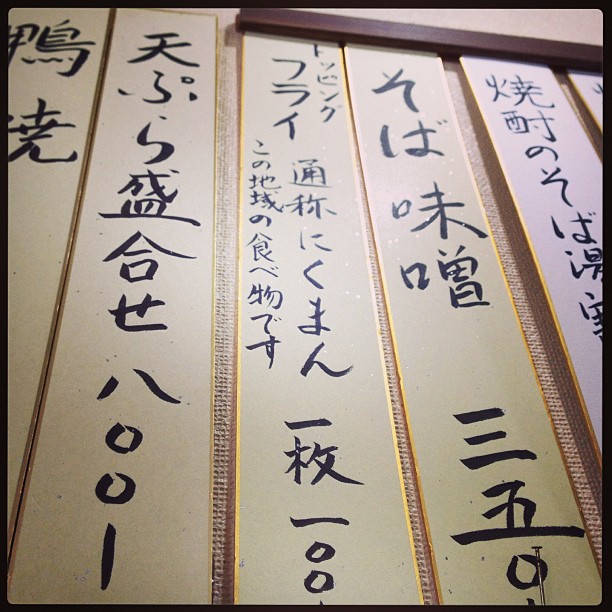 焼酎のそば湯割
そば味噌 三五〇
トッピング
フライ 通称にくまん 一枚 一〇〇
この地域の食べ物です
天ぷら盛合せ 八〇〇ー
鴨焼